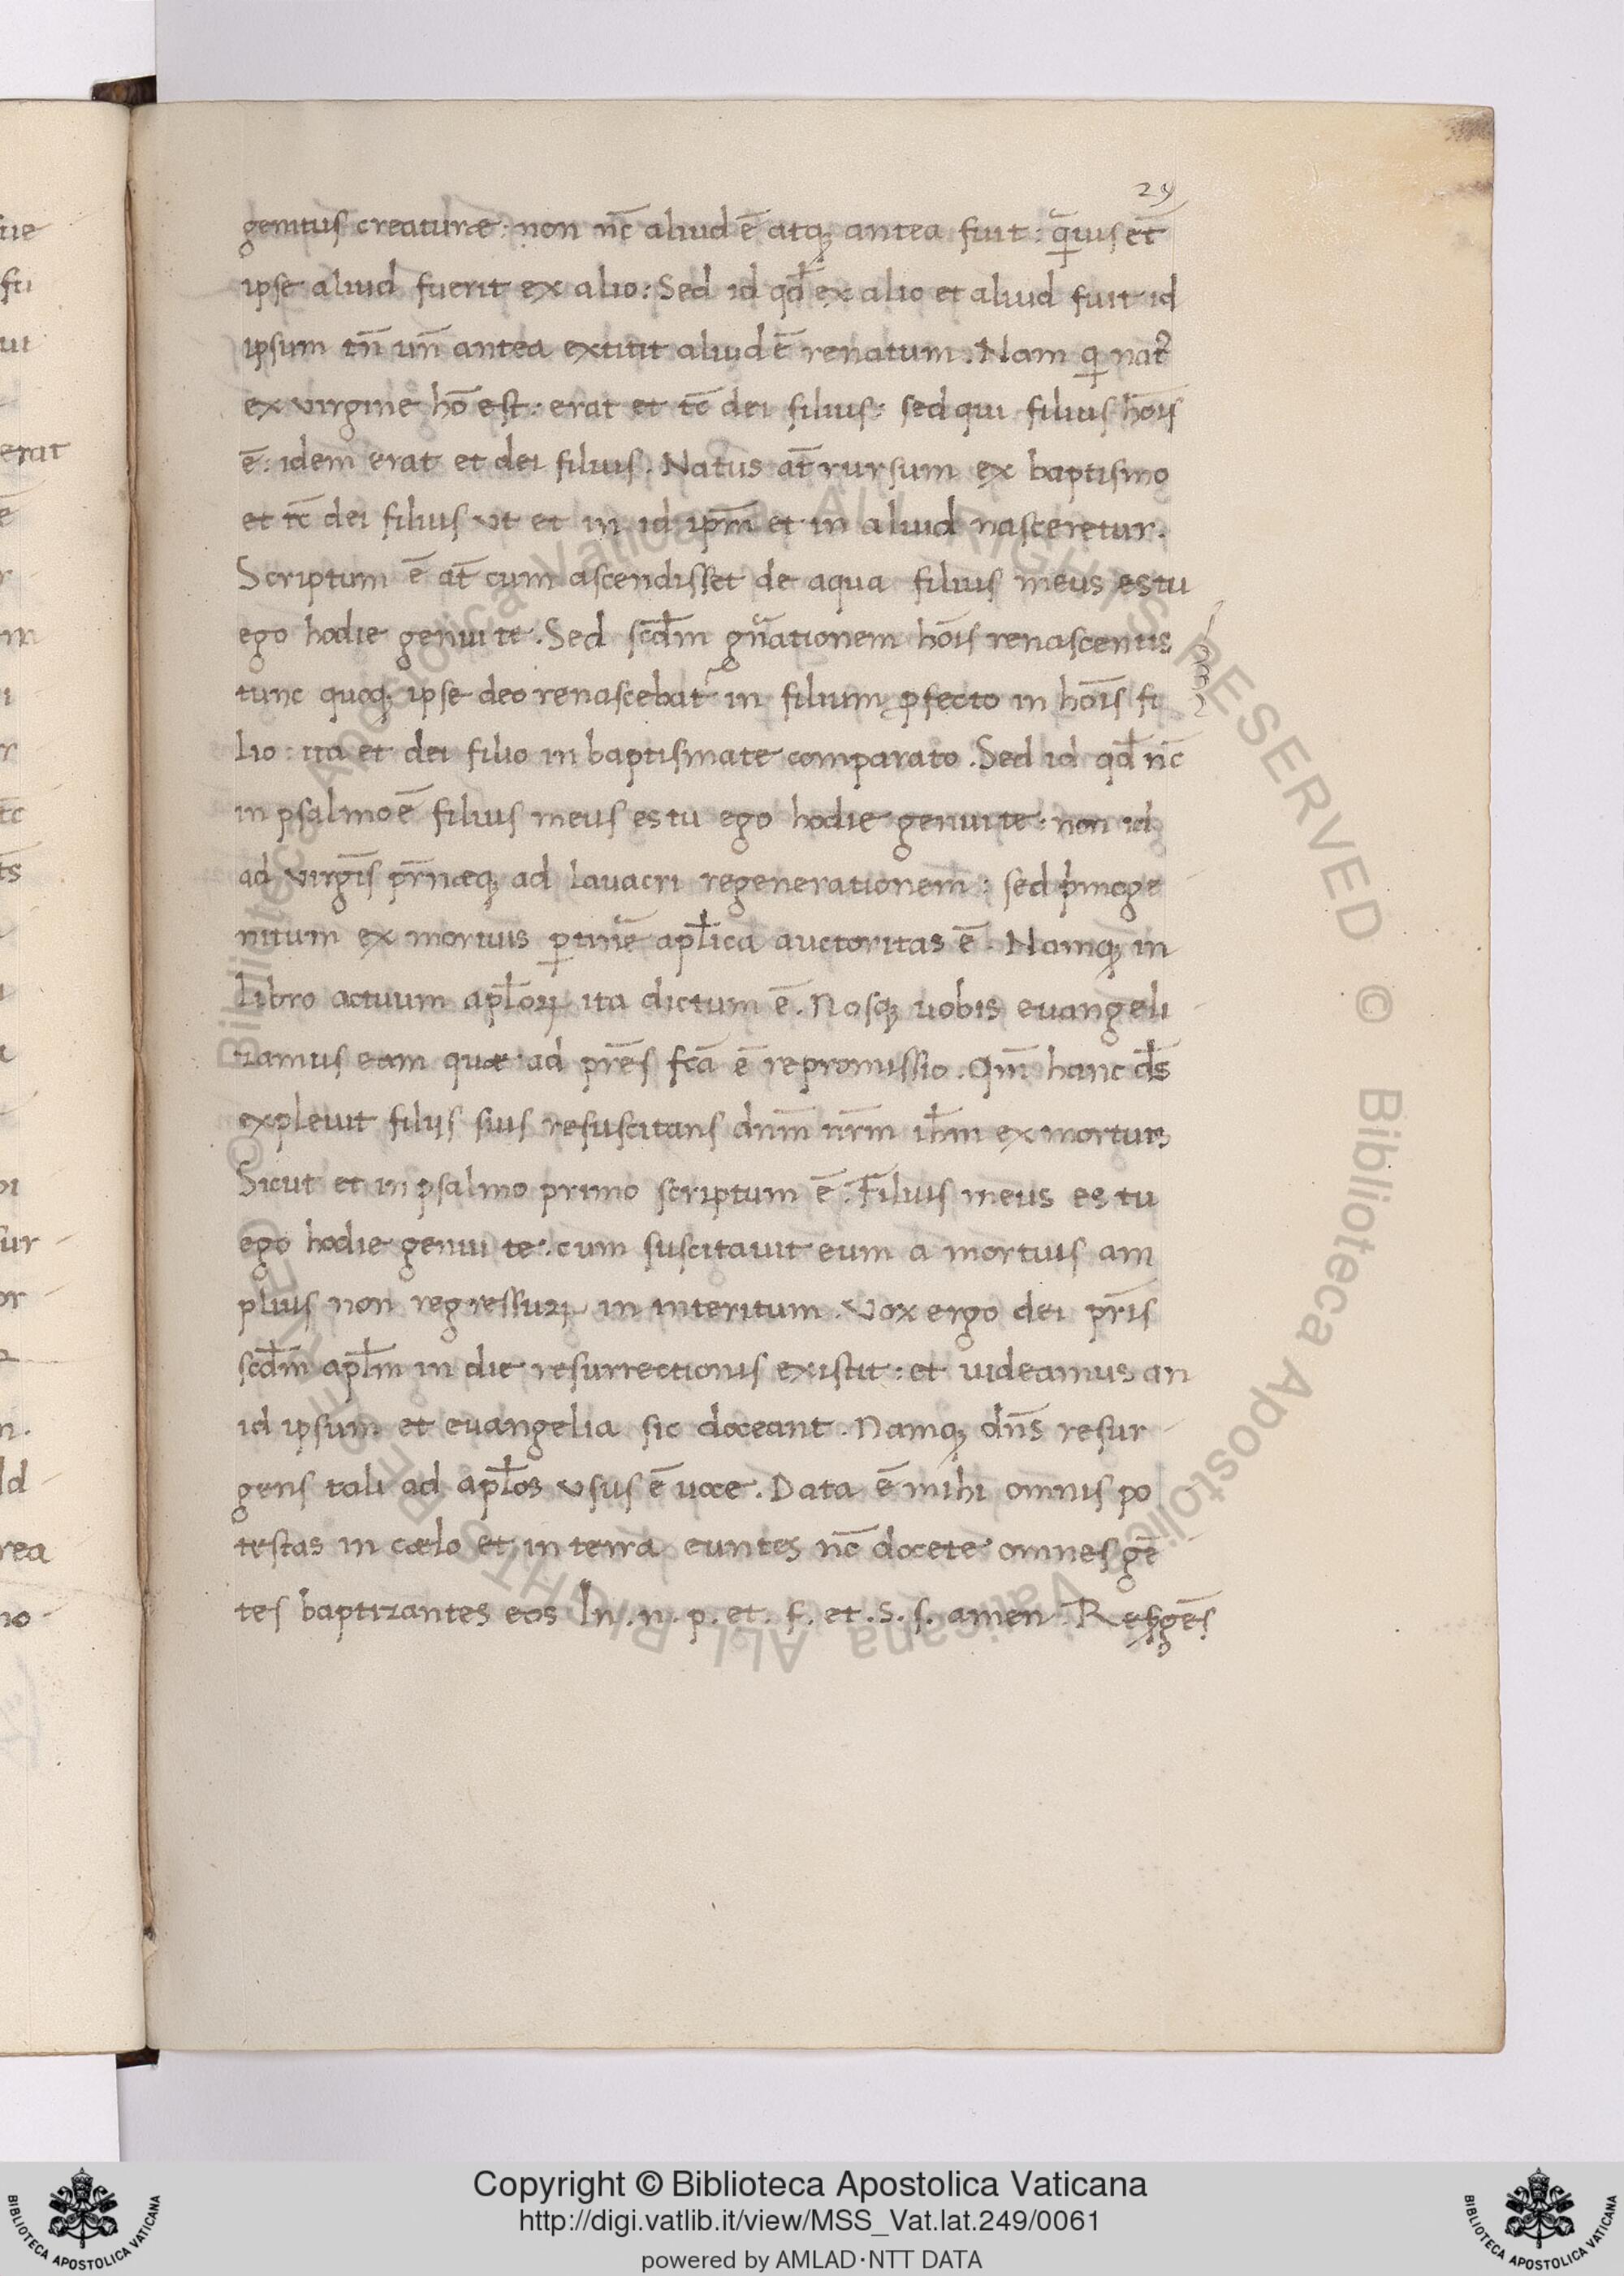 29
genitus creaturæ: non nc̄ aliud ē atqꝫ antea fuit: ꝗ̄uis et̄
ipse aliud fuerit ex alio: Sed id qd̄ ex alio et aliud fuit id
ipsum tn̄ un̄ antea extitit aliud ē renatum. Nam ꝗ nat᷑
ex virgine hō est: erat et tc̄ dei filius: sed qui filius hōis
ē: idem erat et dei filius. Natus at̄ rursum ex baptismo
et tc̄ dei filius vt et in id ip̄m et in aliud nasceretur.
Scriptum ē at̄ cum ascendisset de aqua filius meus es tu
ego hodie genui te. Sed scd̄m gn̄ationem hōis renascentis
tunc quoqꝫ ipse deo renascebat᷑ in filium ꝓfecto in hōis fi
lio: ita et dei filio in baptismate comparato. Sed id qd̄ nc̄
in psalmo ē filius meus es tu ego hodie genui te: non id
ad virgīs pr̄næqꝫ ad lauacri regenerationem: sed p̍moge
nitum ex mortuis ꝑtinē apl̄ica auctoritas ē. Namqꝫ in
libro actuum apl̄oꝝ ita dictum ē. Nosqꝫ uobis euangeli
zamus eam quæ ad pr̄es fcā ē repromissio. Qm̄ hanc ds̄
expleuit filijs suis resuscitans dnm̄ nr̄m ih̄m ex mortuis
Sicut et in psalmo primo scriptum ē. Filius meus es tu
ego hodie genui te: cum suscitauit eum a mortuis am
plius non regressuꝝ in interitum. Vox ergo dei pr̄is
scd̄m apl̄m in die resurrectionis existit: et uideamus an
id ipsum et euangelia sic doceant. Namqꝫ dn̄s resur
gens tali ad apl̄os vsus ē uoce. Data ē mihi omnis po
testas in cælo et in terra euntes nc̄ docete omnes gē
tes baptizantes eos In. n. p. et. f. et. s. s. amen
Copyright © Biblioteca Apostolica Vaticana
http://digi.vatlib.it/view/MSS_Vat.lat.249/0061
powered by AMLAD·NTT DATA
BIBLIOTECA APOSTOLICA VATICANA
BIBLIOTECA APOSTOLICA VATICANA
© Biblioteca Apostolica Vaticana ALL RIGHTS RESERVED © Biblioteca Apostolica Vaticana ALL RIGHTS RESERVED